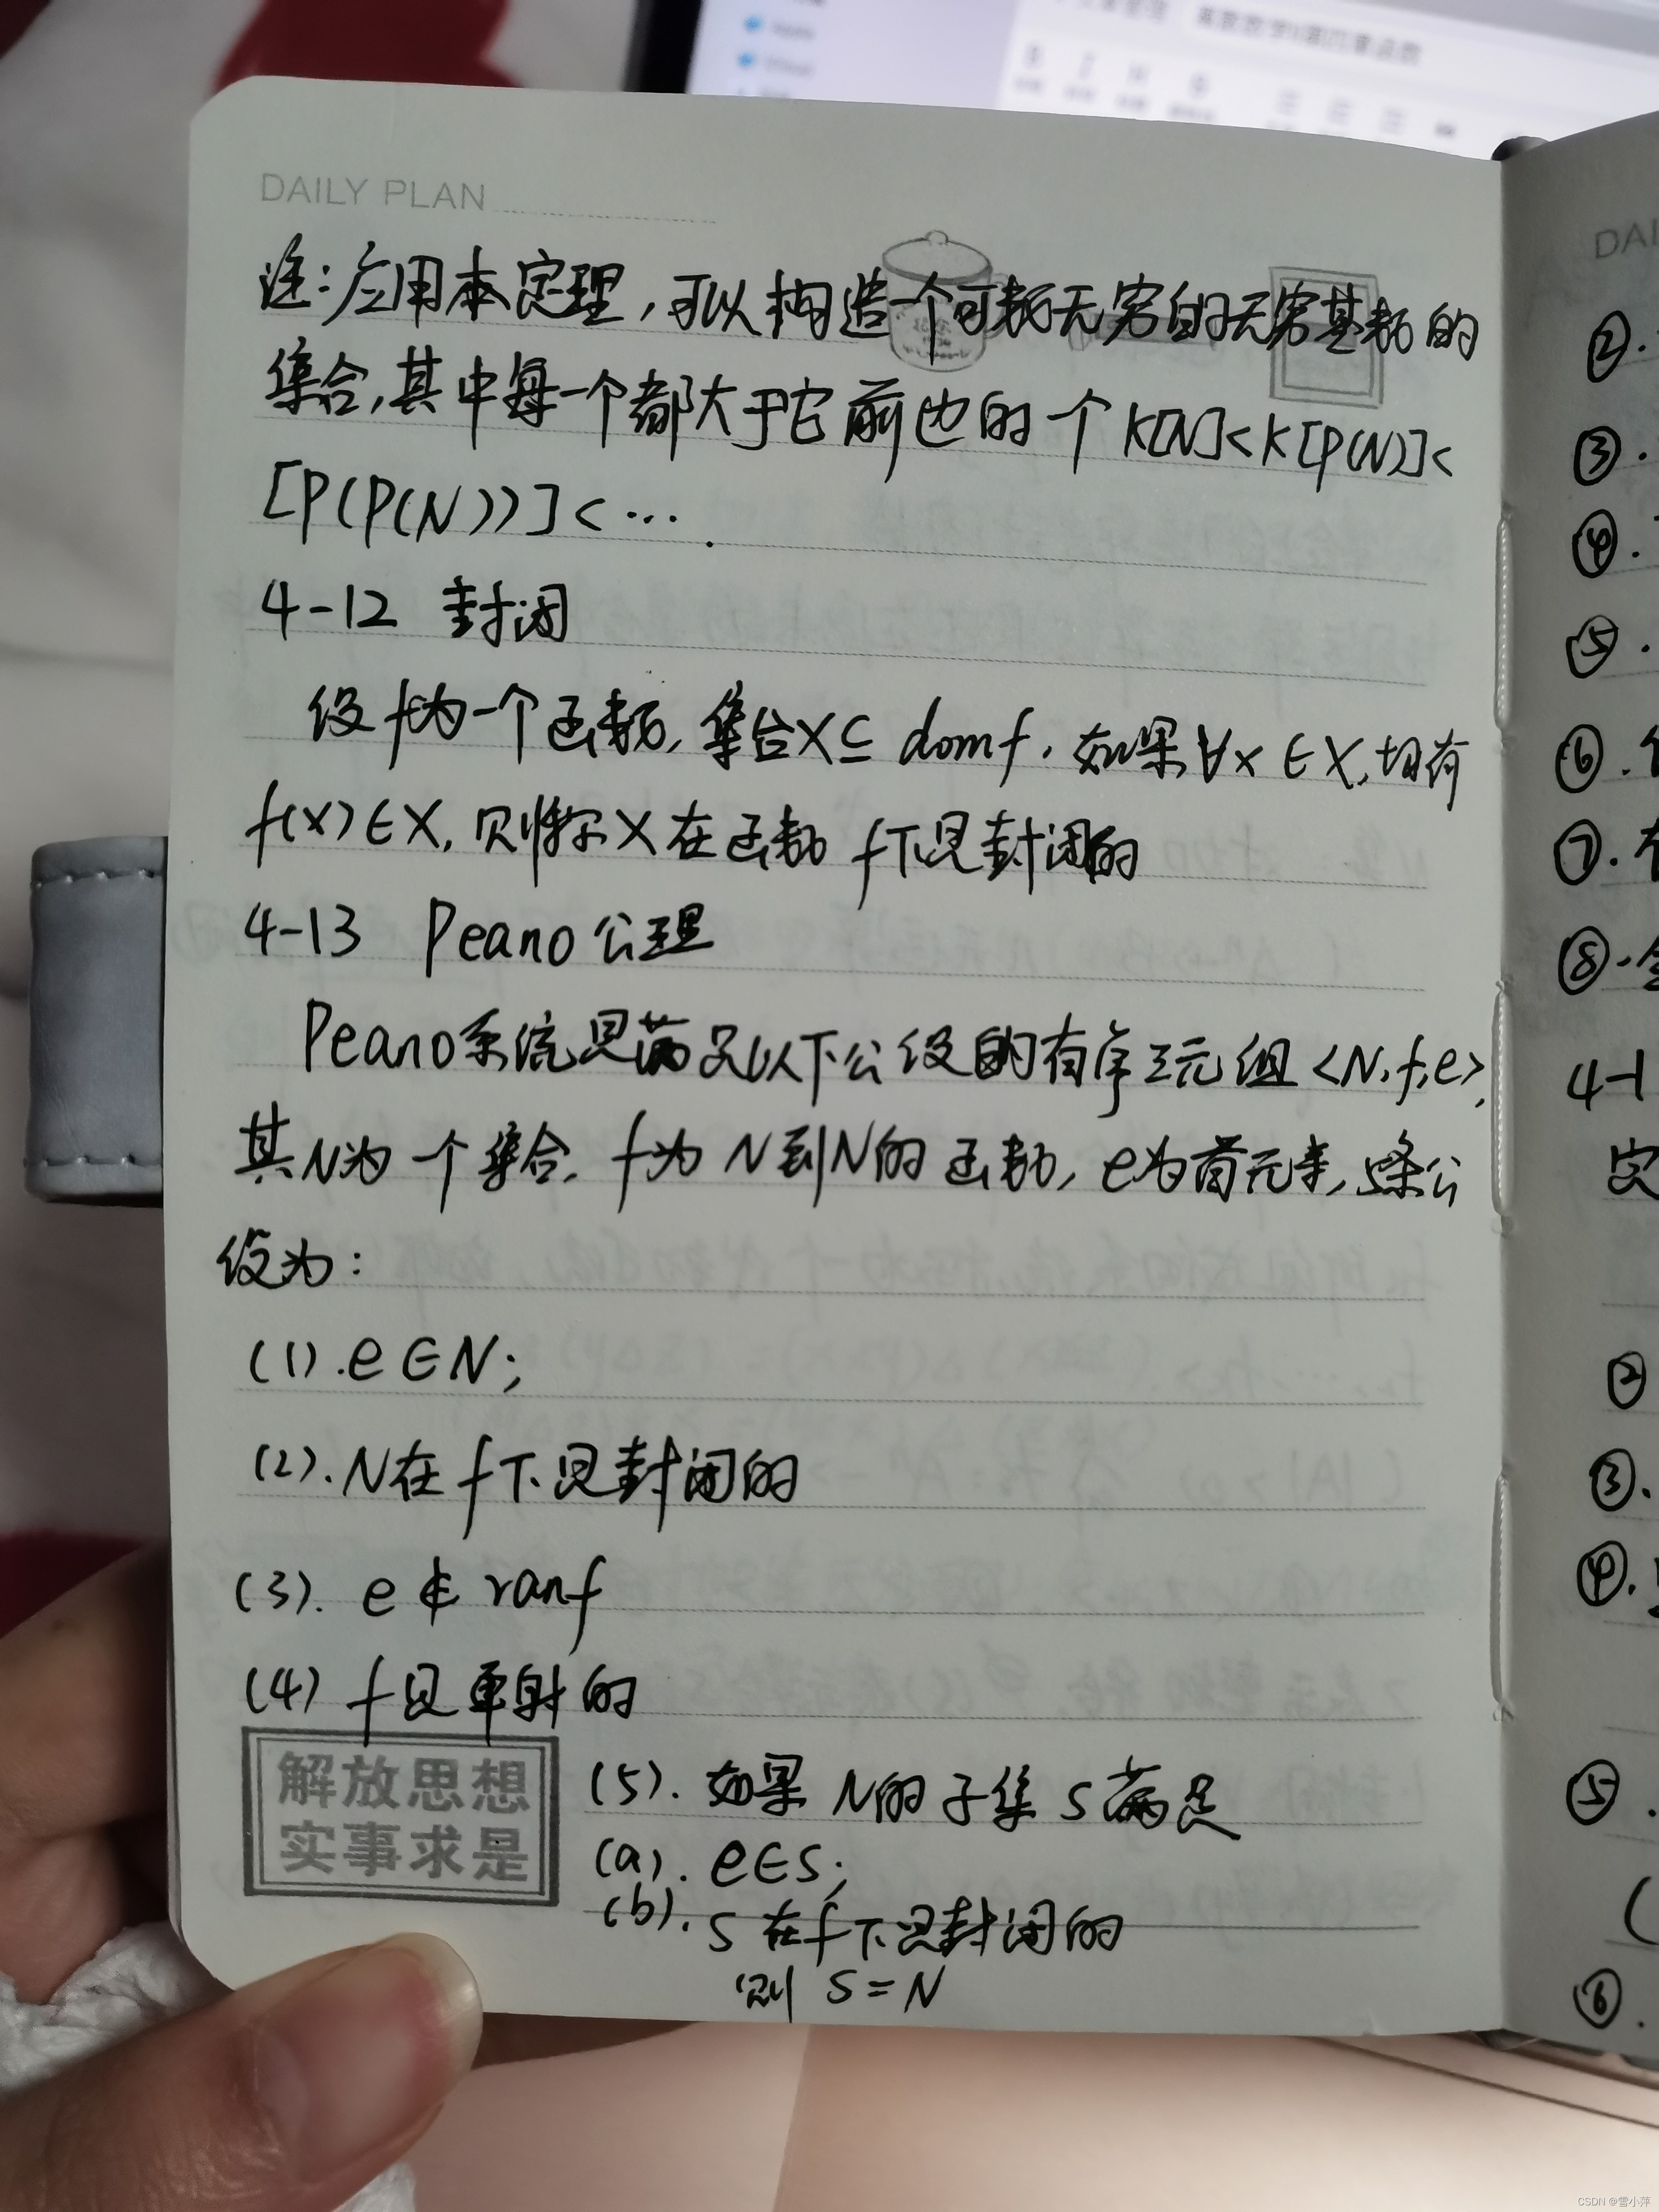 DAILY PLAN
注:应用本定理,可以构造一个可数无穷的无穷基数的
集合,其中每一个都大于它前边的一个 K[N]<K[P(N)]<
[P(P(N))]<….
4-12 封闭
设f为一个函数,集合X⊆domf.如果∀x∈X,均有
f(x)∈X,则称X在函数f下是封闭的
4-13 Peano公理
Peano系统是满足以下公设的有序三元组<N,f,e>,
其N为一个集合,f为N到N的函数,e为首元素,5条公
设为:
(1).e∈N;
(2).N在f下是封闭的
(3). e∉ranf
(4) f是单射的
解放思想
实事求是
(5).如果N的子集S满足
(a). e∈S;
(b). S在f下是封闭的
则 S=N
DAI
②.
③.
④.
⑤.
⑥.
⑦.
⑧.
4-1
定
②
③.
④.
⑤.
(
⑥.
CSDN @雪小萍